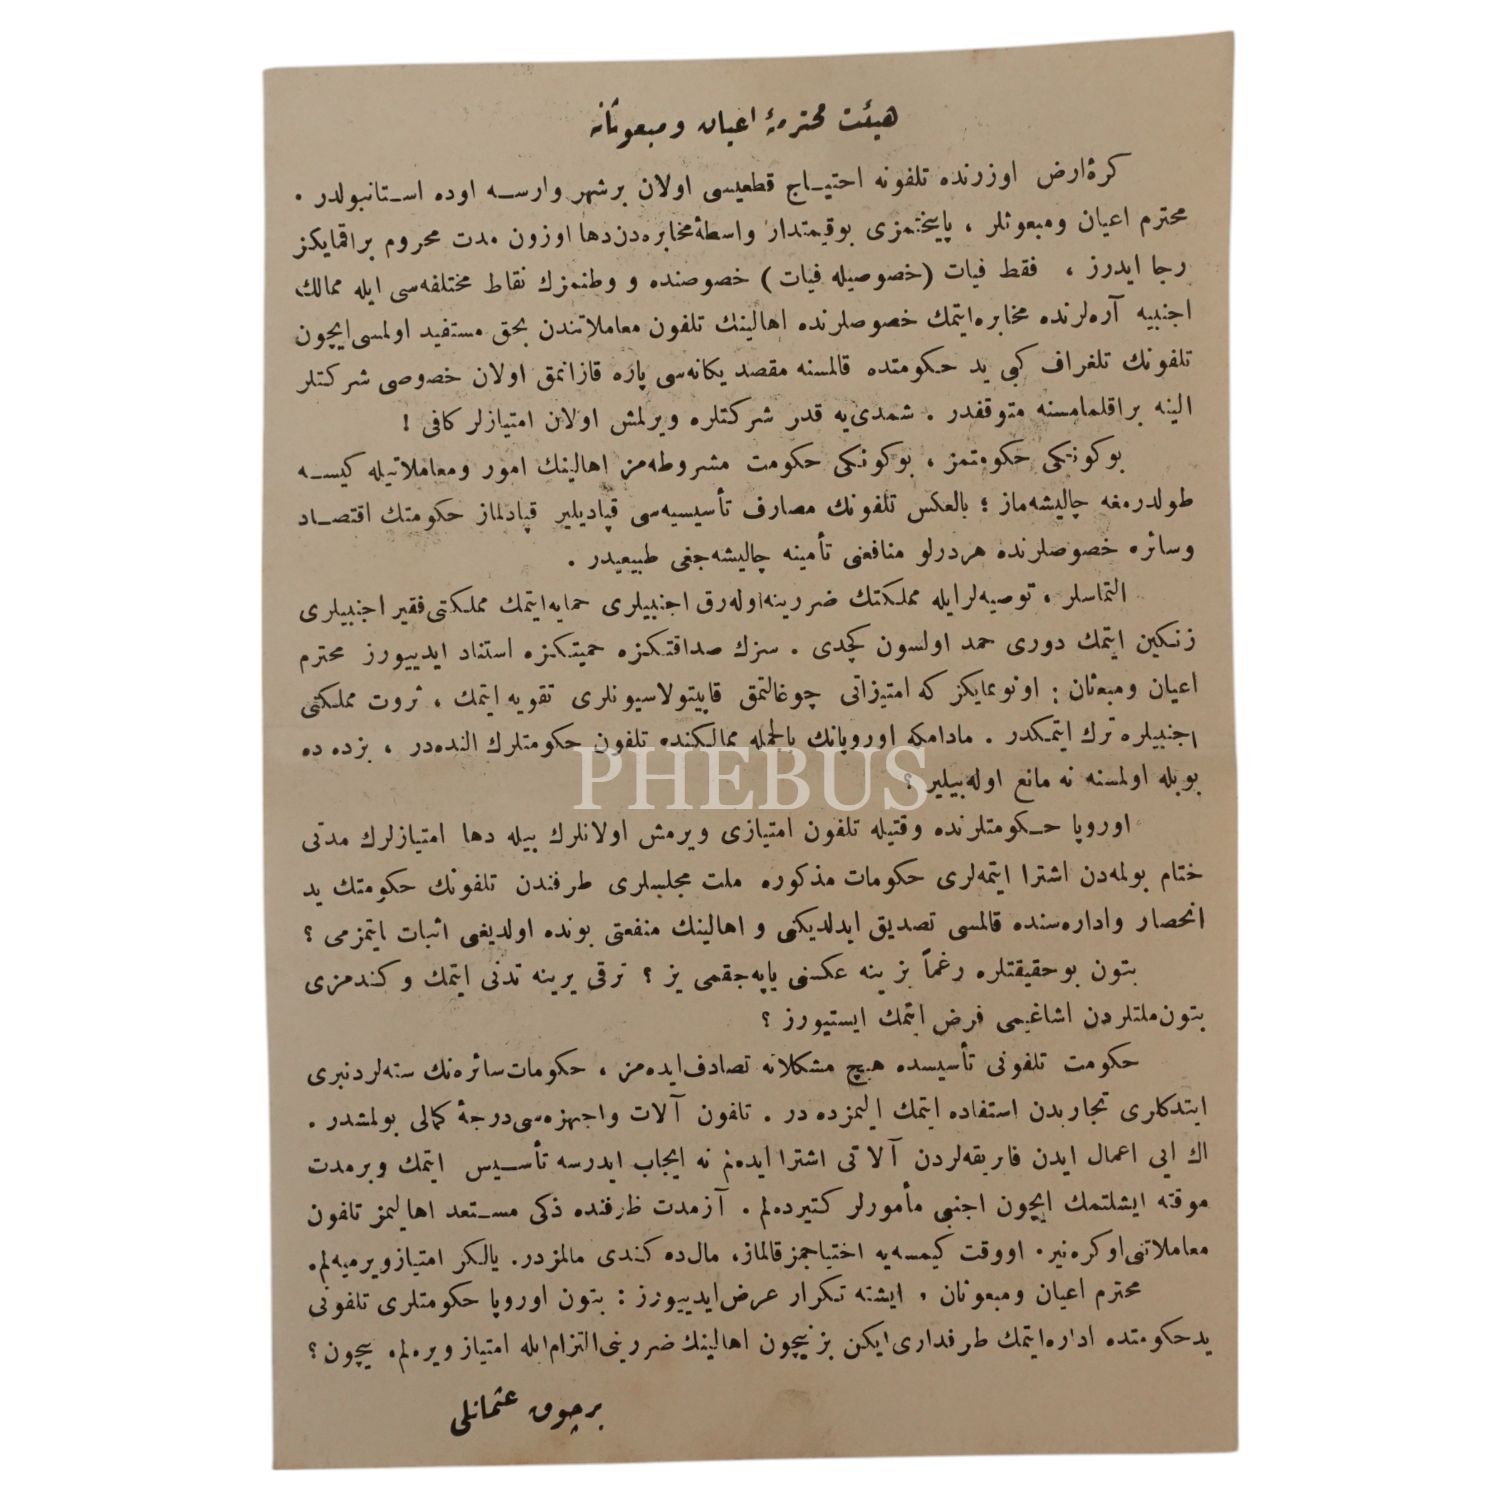 هیئت محترمهٔ اعیان ومبعوثانه
كرهٔ ارض اوزرنده تلفونه احتیـاج قطعیسی اولان برشهر وارسـه اوده اسـتانبولدر .
محترم اعیان ومبعوثلر ، پایتختمزی بوقیمتدار واسطهٔ مخابره‌دن دها اوزون مدت محروم براقمایكز
رجا ایدرز ، فقط فیات (خصوصیله فیات) خصوصنده و وطنمزك نقاط مختلفه‌سی ایله ممالك
اجنبیه آره‌لرنده مخابره ایتمك خصوصلرنده اهالینك تلفون معاملاتندن بحق مستفید اولمسی ایچون
تلفونك تلغراف كبی ید حكومتده قالمسنه مقصد یكانه‌سی پاره قازانمق اولان خصوصی شركتلر
الینه براقلمامسنه متوقفدر . شمدی‌یه قدر شركتلره ویرلمش اولان امتیازلر كافی !
بوكونكی حكومتمز ، بوكونكی حكومت مشروطه‌مز اهالینك امور ومعاملاتیله كیسـه
طولدرمغه چالیشه‌ماز ؛ بالعكس تلفونك مصارف تأسیسیه‌سی قپادیلیر قپادلماز حكومتك اقتصـاد
وسائره خصوصلرنده هردرلو منافعنی تأمینه چالیشه‌جغی طبیعیدر .
التماسلر ، توصیه‌لرایله مملكتك ضررینه اوله‌رق اجنبیلری حمایه ایتمك مملكتی فقیر اجنبیلری
زنكین ایتمك دوری حمد اولسون كچدی . سزك صداقتكزه حمیتكزه استناد ایدییورز محترم
اعیان ومبعوثان : اونوتمایكز كه امتیزاتی چوغالتمق قاپیتولاسیونلری تقویه ایتمك ، ثروت مملكتی
اجنبیلره ترك ایتمكدر . مادامكه اوروپانك بالجمله ممالكنده تلفون حكومتلرك النده‌در ، بزده ده
بویله اولمسنه نه مانع اوله‌بیلیر ؟
PHEBUS
اوروپا حـكومتلرنده وقتیله تلفون امتیازی ویرمش اولانلرك بیله دها امتیازلرك مدتی
ختام بولمه‌دن اشترا ایتمه‌لری حكومات مذكوره ملت مجلسلری طرفندن تلفونك حكومتك ید
انحصار واداره‌سنده قالمسی تصدیق ایدلدیكنی و اهالینك منفعتی بونده اولدیغی اثبات ایتمزمی ؟
بتون بوحقیقتلره رغماً بز ینه عكسنی یاپه‌جقمی یز ؟ ترقی یرینه تدنی ایتمك و كندمزی
بتون‌ملتلردن اشاغیمی فرض ایتمك ایستیورز ؟
حكومت تلفونی تأسیسده هیچ مشكلاته تصادف ایده‌مز ، حكومات سائره‌نك سنه‌لردنبری
ایتدكلری تجاربدن استفاده ایتمك الیمزده در . تلفون آلات واجهزه‌سی درجهٔ كمالی بولمشدر .
اك ایی اعمال ایدن فابریقه‌لردن آلاتی اشترا ایده‌لم نه ایجاب ایدرسه تأسـیس ایتمك وبرمدت
موقته ایشلتمك ایچون اجنبی مأمورلر كتیرده‌لم . آزمدت ظرفنده ذكی مسـتعد اهالیمز تلفون
معاملاتنی اوكره‌نیر. اووقت كیمسه‌یه احتیاجمز قالماز، مال‌ده كندی مالمزدر. یالكز امتیازویرمیه‌لم.
محترم اعیان ومبعوثان ، ایشته تكرار عرض ایدییورز : بتون اوروپا حكومتلری تلفونی
ید حكومتده اداره ایتمك طرفداری ایكن بز نیچون اهالینك ضررینی التزام ایله امتیاز ویره‌لم. نیچون ؟
برچوق عثمانلی